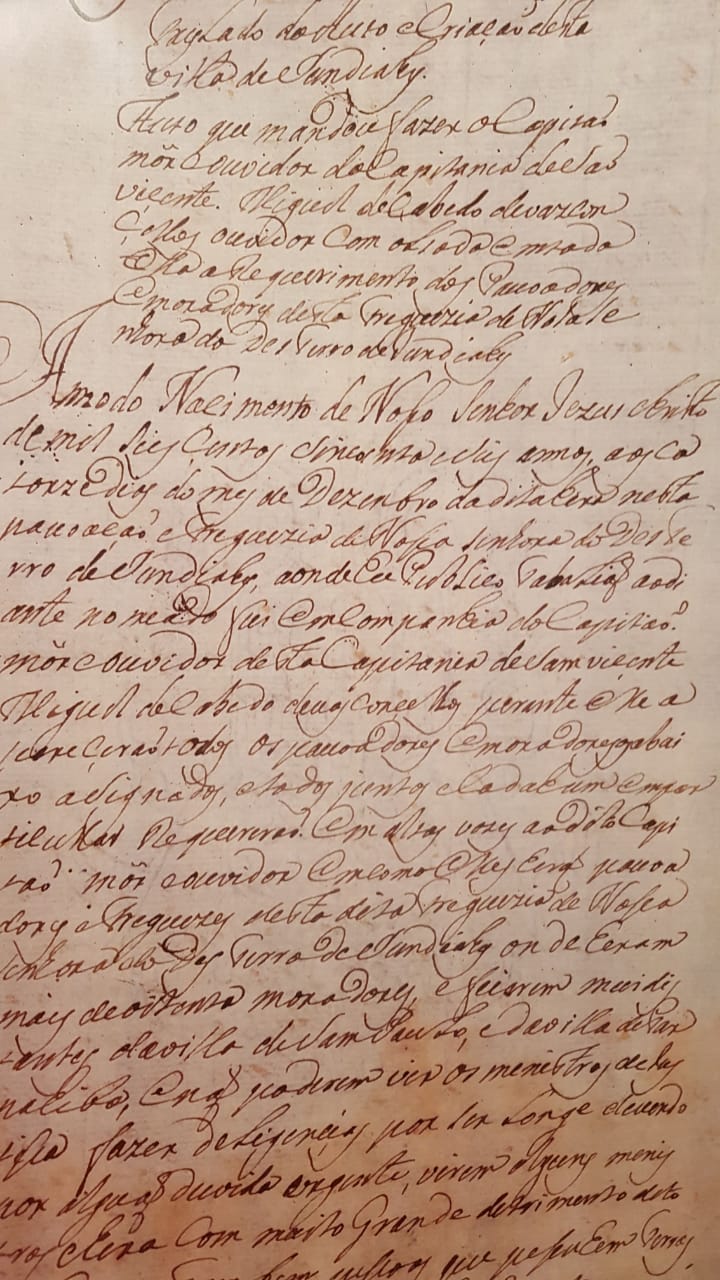 Treslado do Auto e Criação desta
villa de Jundiahy.
Auto que mandou fazer o Capitaõ
mór e ouvidor da Capitania de Saõ
vicente. Miguel de Cabedo devazcon
çellos ouvidor com alsada emtoda
Ella a Requerimento dos Pauoadores
Emoradores desta Freguezia de Nosa Se
nhora do Desterro de Jundiahy
Anno do Nacimento de Nosso Senhor Jezus christo
de mil seis centos cincoenta e seis annos, aos ca
torze dias do mes de Dezenbro da dita hera nesta
pauoação e Freguezia de Nossa senhora do Deste
rro de Jundiahy, aonde Eu Publico Tabaliaõ aodi
ante nomeado fui Em Companhia do Capitaõ
mór e ouvidor desta Capitania de Sam vicente
Miguel de Cabedo devasconcellos perante Elle a
pareceraõ todos os pauoadores Emoradores abai
xo asignados, e todos juntos e Cada hum empar
ticular Requereraõ Em altas vozes ao dito Capi
taõ mór e ouvidor Emcomo Elles Eraõ pauoa
dores e Freguezes desta dita Freguezia de Nossa
senhora do Desterro de Jundiahy onde Eeram
mais de oitenta moradores, e ficarem mui dis
tantes da villa de Sam Paulo, e da villa de Par
nahiba, E naõ poderem vir os menistros da Jus
tisa fazer deligencias por ser Longe e quando
por algua duvida urgente, virem alguns menis
tros Hera com muito Grande detrimento
que pesuEem terras,